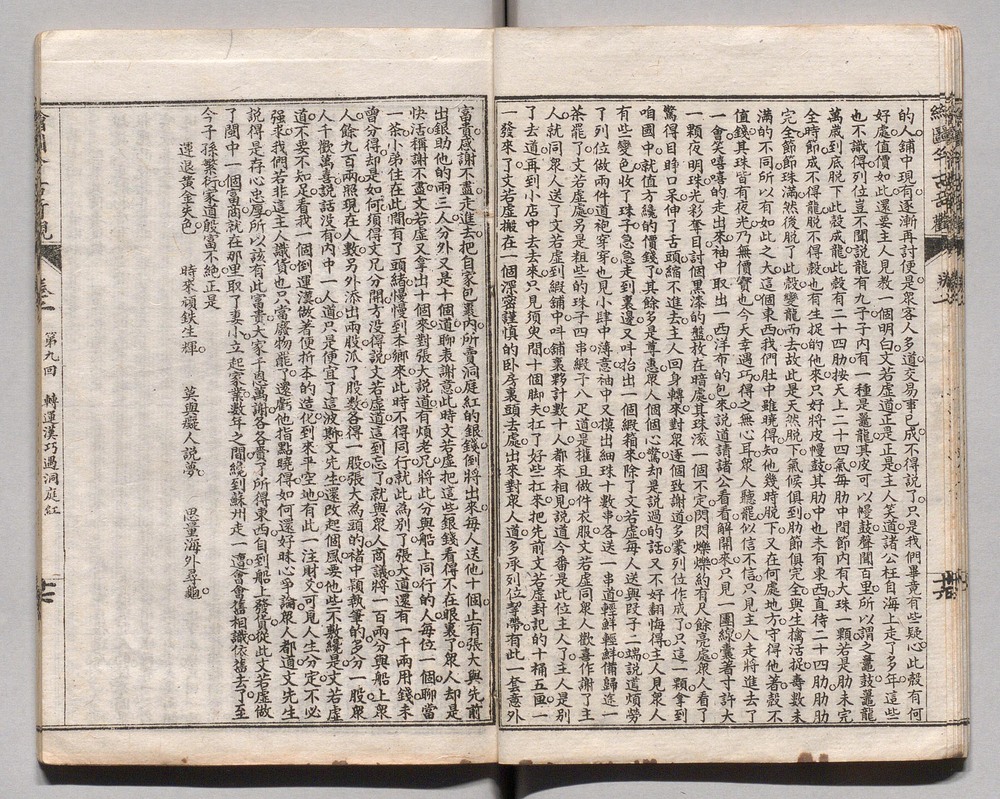 的人舖中現有逐漸再討便是衆客人多道交易事已成不得說了只是我們畢竟有些疑心此殼有何
好處值價如此還要主人見教一個明白文若虛道正是正是主人笑道諸公枉自海上走了多年這些
也不識得列位豈不聞說龍有九子乎內有一種是鼉龍其皮可以幔鼓聲聞百里所以謂之鼉鼓鼉龍
萬歲到底脫下此殼成龍此殼有二十四肋按天上二十四氣每肋中間節內有大珠一顆若是肋未完
全時節成不得龍脫不得殼也有生捉的他來只好將皮幔鼓其肋中也未有東西直待二十四肋肋肋
完全節節珠滿然後脫了此殼變龍而去故此是天然脫下氣候俱到肋節俱完全與生擒活捉壽數未
滿的不同所以有如此之大這個東西我們肚中雖曉得知他幾時脫下又在何處地方守得他着殼不
值錢其珠皆有夜光乃無價寶也今天幸遇巧得之無心耳衆人聽罷似信不信只見主人走將進去了
一會笑嘻嘻的走出來袖中取出一西洋布的包來說道請諸公看看解開來只見一團綿裹著寸許大
一顆夜明珠光彩奪目討個黑漆的盤放在暗處其珠滚一個不定閃閃爍爍約有尺餘亮處衆人看了
驚得目睁口呆伸了舌頭縮不進去主人回身轉來對衆逐個致謝道多蒙列位作成了只這一顆拿到
咱國中就值方纔的價錢了其餘多是尊惠衆人個個心驚却是說過的話又不好翻悔得主人見衆人
有些變色收了珠子急急走到裏邊又呌抬出一個緞箱來除了文若虛每人送與段子二端說道煩勞
了列位做兩件道袍穿穿也見小肆中薄意袖中又摸出細珠十數串各送一串道輕鮮輕鮮備歸途一
茶罷了文若虛處另是粗些的珠子四串緞子八疋道是權且做件衣服文若虛同衆人歡喜作謝了主
人就同衆人送了文若虛到緞舖中呌舖裏夥計數十人都來相見說道今番是此位主人了主人是別
了去道再到小店中去去來只見須臾間十個脚夫扛了好些扛來把先前文若虛封記的十桶五匣一
一發來了文若虛搬在一個深密謹慎的卧房裏頭去處出來對衆人道多承列位挈帶有此一套意外
富貴感謝不盡走進去把自家包裹內所賣洞庭紅的銀錢倒將出來每人送他十個止有張大與先前
出銀助他的兩三人分外又是十個道聊表謝意此時文若虛把這些銀錢看得不在眼裏了衆人却是
快活稱謝不盡文若虛又拿出十個來對張大說道有煩老兄將此分與船上同行的人每位一個聊當
一茶小弟住在此間有了頭緒慢慢到本鄉來此時不得同行就此為別了張大道還有一千兩用錢未
曾分得却是如何須得文兄分開方没得說文若虛道這到忘了就與衆人商議將一百兩分與船上衆
人餘九百兩照現在人數另外添出兩股派了股數各得一股張大為頭的褚中穎執筆的多分一股衆
人千歡萬喜說話没有內中一人道只是便宜了這波斯文先生還改起個風要他些不敷纔是文若虛
道不要不知足看我一個倒運漢做着便折本的造化到來平空地有此一注財爻可見人生分定不必
强求我們若非這主人識貨也只當廢物罷了還虧他指點曉得如何還好昧心爭論衆人都道文先生
說得是存心忠厚所以該有此富貴大家千恩萬謝各各賫了所得東西自到船上發貨從此文若虛做
了閩中一個富商就在那里取了妻小立起家業數年之間纔到蘇州走一遭會會舊相識依舊去了至
今子孫繁衍家道殷富不絶正是
運退黃金失色　時來頑鉄生輝　莫與癡人說夢　思量海外尋龜
第九回　轉運漢巧遇洞庭紅